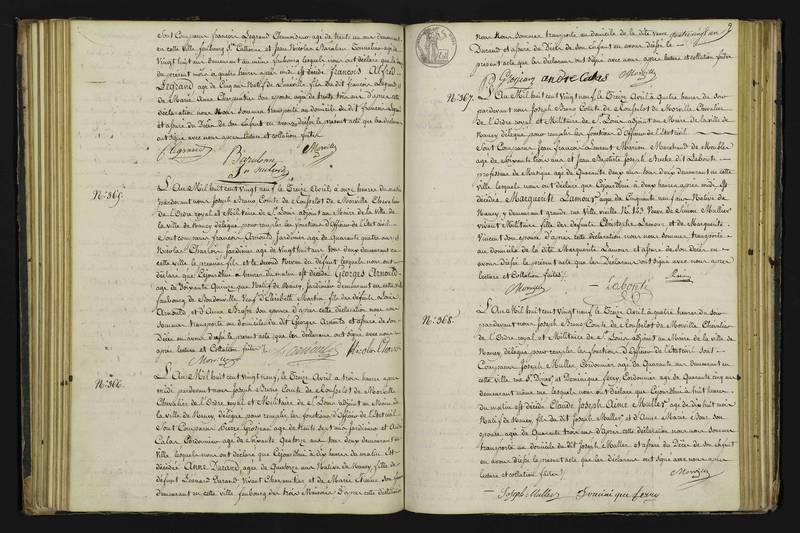 Sont Comparus françois Legrand
en cette ville faubourg Ste Catherine et Jean Nicolas
Vingt huit ans demeurant au même faubourg lesquels nous ont déclaré que le
du présent mois à quatre heures après midi est décédé françois Alfred
Legrand agé de Cinq ans Natif de Lunéville fils du dit françois Legrand
et de Marie Anne Charpentier son épouse agée de trente trois ans d'après cette
déclaration nous nous sommes transporté au domicile du dit françois Legrand
et assuré du Décès de son Enfant en avons dressé le présent acte que les déclarans
ont signé avec nous après lecture et collation faites
Legrand Morville
No. 365.
L'An Mil huit cent Vingt neuf le Treize Avril à onze heures du matin
pardevant nous Joseph Bruno Comte de Morville Chevalier
de l'Ordre royal et Militaire de St. Louis adjoint au Maire de la ville de
la ville de Nancy délégué pour remplir les fonctions d'officier de l'état civil
Sont comparus francois Arnould Jardinier agé de quarante quatre ans et
Nicolas Jardinier agé de Vingt huit ans tous deux demeurant en
cette ville le premier fils et le second du défunt lesquels nous ont
déclaré que Cejourd'hui heures du matin est décédé Georges Arnould
agé de Soixante Quinze ans Natif de Nancy, Jardinier demeurant en cette ville
faubourg de Boudonville Veuf d'Elisabeth Martin fils des défunts Louis
Arnould et d'Anne son épouse d'après cette déclaration nous nous
sommes transporté au domicile du dit Georges Arnould et assuré de son
Décès en avons dressé le présent acte que les déclarans ont signé avec nous
après lecture et Collation faites
Morville
No. 366.
L'An Mil huit cent Vingt neuf, le Treize Avril à trois heures après
midi pardevant nous Joseph Bruno Comte de Morville
Chevalier de l'Ordre royal et Militaire de St. Louis adjoint au Maire de
la ville de Nancy délégué pour remplir les fonctions d'officier de l'état civil
Sont Comparus Pierre Grosjean agé de trente sept ans Jardinier et André
Cordonnier agé de soixante Quatorze ans tous deux demeurant en cette
ville lesquels nous ont déclaré que Cejourd'hui à dix heures du matin est
décédée Anne Durand, agée de Quatorze ans Native de Nancy, fille du
défunt Léonard Durand Vivant Charpentier et de Marie son épouse
demeurant en cette ville faubourg des trois Maisons D'après cette déclaration
9
nous nous sommes transporté au domicile de la dite veuve
Durand et assuré du Décès de son Enfant en avons dressé le
présent acte que les déclarans ont signé avec nous après lecture et collation faites
Grosjean andré Morville
No. 367.
L'An Mil huit cent Vingt neuf, le Treize Avril à Quatre heures du soir
pardevant nous Joseph Bruno Comte de Morville Chevalier
de l'Ordre royal et Militaire de St. Louis adjoint au Maire de la ville de
Nancy délégué pour remplir les fonctions d'officier de l'état civil
Sont Comparus Jean François Laurent Marchand de Meubles
agé de Soixante trois ans et Jean Baptiste Joseph dit Lebonté
professeur de Musique agé de Quarante deux ans tous deux demeurant en cette
ville lesquels nous ont déclaré que Cejourd'hui à deux heures après midi est
décédée Marguerite Lamour agée de Cinquante neuf ans Native de
Nancy, y demeurant grande rue ville vieille No. 123 Veuve de Simon Muller
vivant Militaire fille des défunts Christophe Lamour et de Marguerite
Vincent son épouse d'après cette déclaration nous nous sommes transporté
au domicile de la dite Marguerite Lamour et assuré de son Décès en
avons dressé le présent acte que les Déclarans ont signé avec nous après
lecture et Collation faites
Morville Lebonté
No. 368.
L'An Mil huit cent Vingt neuf, le Treize Avril à quatre heures du soir
pardevant nous Joseph Bruno Comte de Morville Chevalier
de l'Ordre royal et Militaire de St. Louis adjoint au Maire de la ville de
Nancy délégué pour remplir les fonctions d'officier de l'état civil Sont
Comparus Joseph Muller Cordonnier agé de Quarante ans demeurant en
cette ville rue St. Dizier et Dominique ferry Cordonnier agé de Quarante cinq ans
demeurant même rue lesquels nous ont déclaré que Cejourd'hui à huit heures
du matin est décédé Claude Joseph Aimé Muller agé de dix huit mois
Natif de Nancy fils du dit Joseph Muller et d'Anne Marie son
épouse agée de Quarante trois ans d'après cette déclaration nous nous sommes
transporté au domicile du dit Joseph Muller et assuré du Décès de son Enfant
en avons dressé le présent acte que les déclarans ont signé avec nous après
lecture et collation faites
Morville
Joseph Muller Dominique ferry